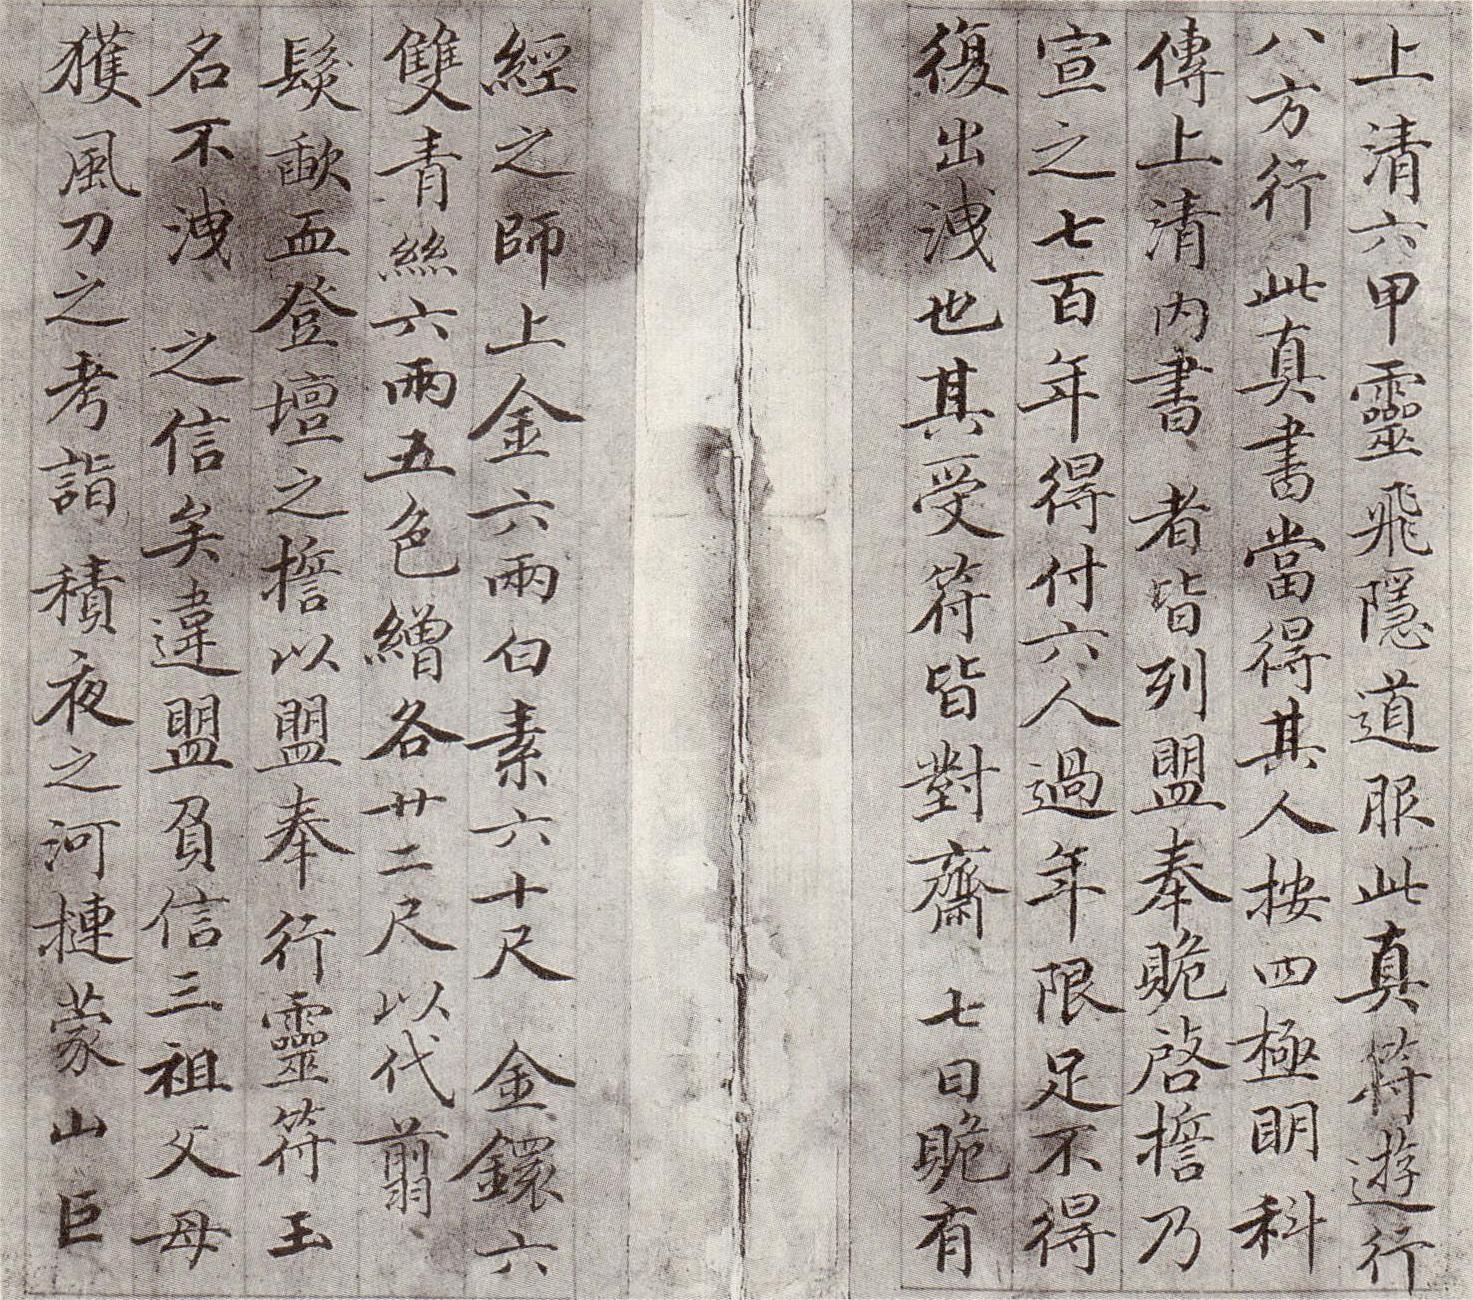 上清六甲靈飛隱道服此真符遊行
八方行此真書當得其人按四極明科
傳上清內書者皆列盟奉賝啓擔乃
宣之七百年得付六人過年限足不得
復出洩也其受符皆對齋七日賝有
經之師上金六兩白素六十尺金鐶六
雙青絲六兩五色繒各廿二尺以代翦
髮歃血登壇之擔以盟奉行靈符玉
名不洩之信矣違盟負信三祖父母
獲風刀之考詣積夜之河摙蒙山巨